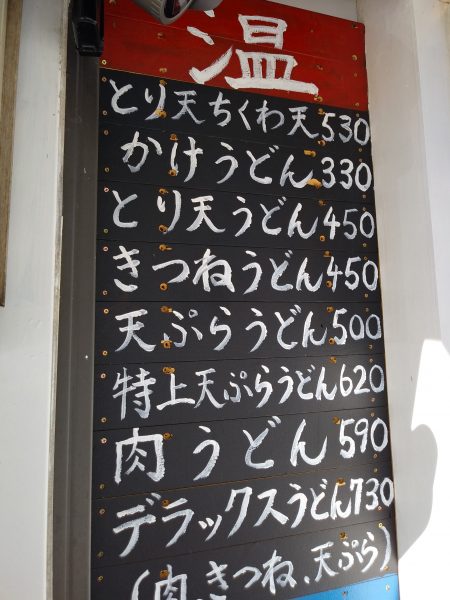 温
とり天ちくわ天530
かけうどん330
とり天うどん450
きつねうどん450
天ぷらうどん500
特上天ぷらうどん620
肉うどん590
デラックスうどん730
(肉、きつね、天ぷら)